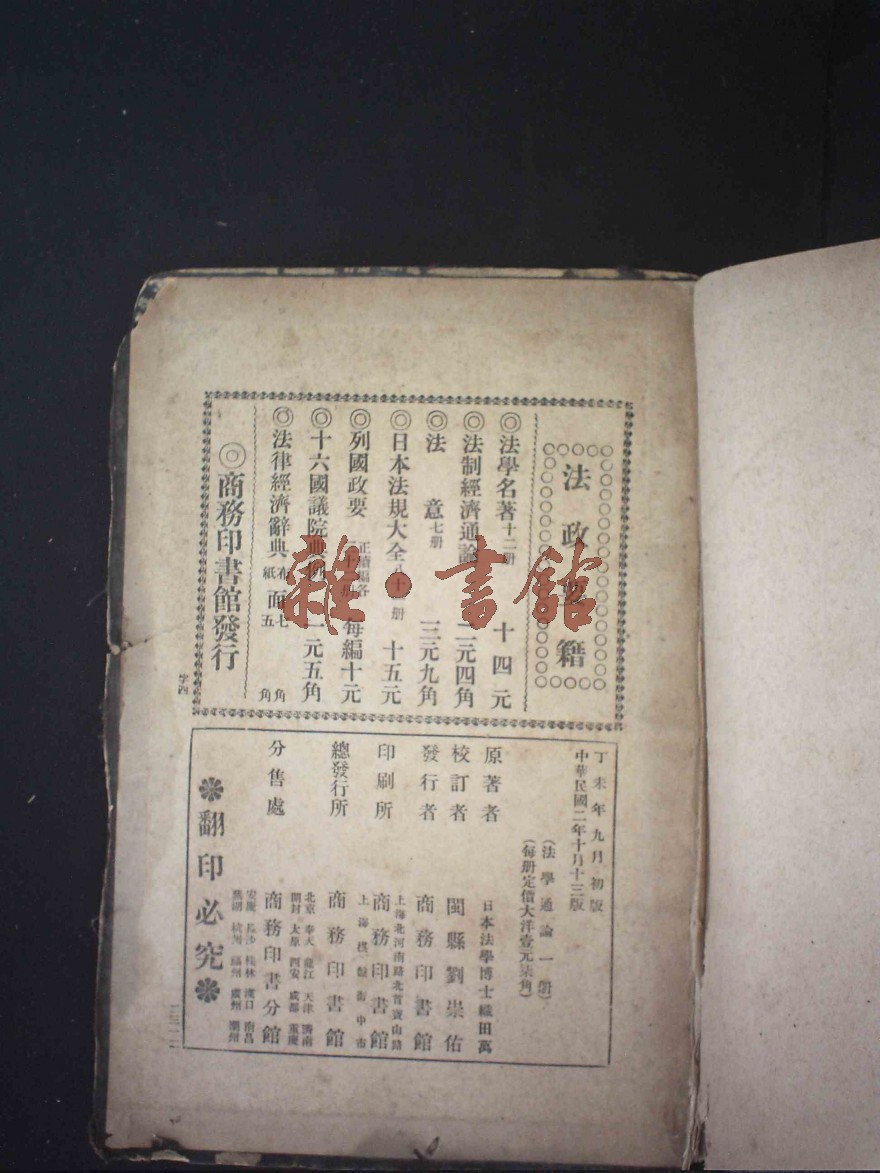 法政要籍
◎法學名著十二册 十四元
◎法制經濟通論 二元四角
◎法意七册 三元九角
◎日本法規大全八十一册 十五元
◎列國政要 正續編各 每編十元
◎十六國議院典例 一元五角
◎法律經濟辭典 布面七角 紙面五角
◎商務印書館發行
字四
丁未年九月初版
中華民國二年十月十三版
(法學通論一册)
(每册定價大洋壹元柒角)
原著者 日本法學博士織田萬
校訂者 閩縣劉崇佑
發行者 商務印書館
印刷所 上海北河南路北首寶山路 商務印書館
總發行所 上海棋盤街中市 商務印書館
分售處 北京 奉天 龍江 天津 濟南 開封 太原 西安 成都 重慶 商務印書分館 安慶 長沙 桂林 漢口 南昌 蕪湖 杭州 福州 廣州 潮州
翻印必究
雜·書館